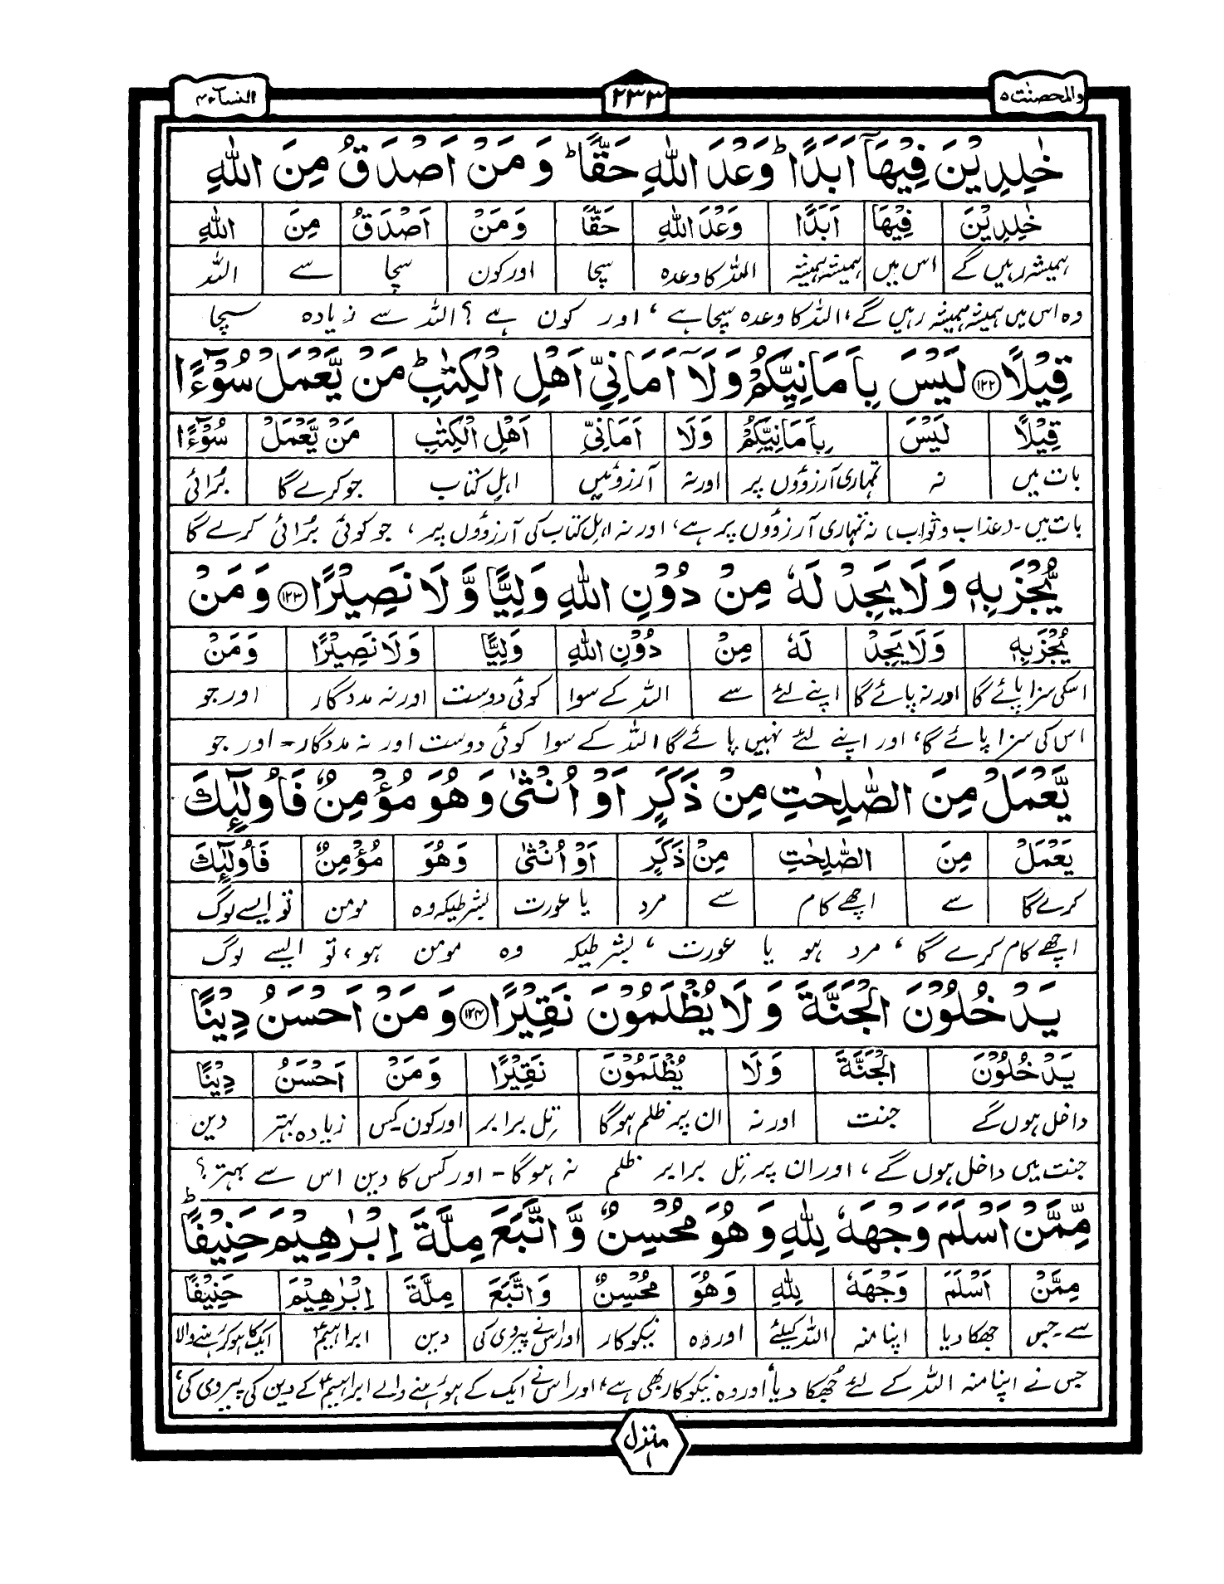 والمحصنت ۵
۲۳۳
النسآء ۴
خٰلِدِيْنَ فِيْهَآ اَبَدًا ؕ وَعْدَ اللّٰهِ حَقًّا ؕ وَ مَنْ اَصْدَقُ مِنَ اللّٰهِ
خٰلِدِيْنَ فِيْهَآ اَبَدًا وَعْدَ اللّٰهِ حَقًّا وَمَنْ اَصْدَقُ مِنَ اللّٰهِ
ہمیشہ رہیں گے اس میں ہمیشہ ہمیشہ اللہ کا وعدہ سچا اور کون سچا سے اللہ
وہ اس میں ہمیشہ ہمیشہ رہیں گے، اللہ کا وعدہ سچا ہے، اور کون ہے؟ اللہ سے زیادہ سچا
قِيْلًا ﴿۱۲۲﴾ لَيْسَ بِاَمَانِيِّكُمْ وَلَآ اَمَانِيِّ اَهْلِ الْكِتٰبِ ؕ مَنْ يَّعْمَلْ سُوْٓءًا
قِيْلًا لَيْسَ بِاَمَانِيِّكُمْ وَلَا اَمَانِيِّ اَهْلِ الْكِتٰبِ مَنْ يَّعْمَلْ سُوْٓءًا
بات میں نہ تمہاری آرزوؤں پر اور نہ آرزوئیں اہل کتاب جو کرے گا برائی
بات میں۔ (عذاب و ثواب) نہ تمہاری آرزوؤں پر ہے، اور نہ اہل کتاب کی آرزوؤں پر، جو کوئی برائی کرے گا
يُّجْزَ بِهٖ وَلَا يَجِدْ لَهٗ مِنْ دُوْنِ اللّٰهِ وَلِيًّا وَّلَا نَصِيْرًا ﴿۱۲۳﴾ وَ مَنْ
يُجْزَ بِهٖ وَلَا يَجِدْ لَهٗ مِنْ دُوْنِ اللّٰهِ وَلِيًّا وَلَا نَصِيْرًا وَمَنْ
اسکی سزا پائے گا اور نہ پائے گا اپنے لئے سے اللہ کے سوا کوئی دوست اور نہ مددگار اور جو
اس کی سزا پائے گا، اور اپنے لئے نہیں پائے گا اللہ کے سوا کوئی دوست اور نہ مددگار۔ اور جو
يَّعْمَلْ مِنَ الصّٰلِحٰتِ مِنْ ذَكَرٍ اَوْ اُنْثٰى وَهُوَ مُؤْمِنٌ فَاُولٰٓئِكَ
يَعْمَلْ مِنَ الصّٰلِحٰتِ مِنْ ذَكَرٍ اَوْ اُنْثٰى وَهُوَ مُؤْمِنٌ فَاُولٰٓئِكَ
کرے گا سے اچھے کام سے مرد یا عورت بشرطیکہ وہ مومن تو ایسے لوگ
اچھے کام کرے گا، مرد ہو یا عورت، بشرطیکہ وہ مومن ہو، تو ایسے لوگ
يَدْخُلُوْنَ الْجَنَّةَ وَ لَا يُظْلَمُوْنَ نَقِيْرًا ﴿۱۲۴﴾ وَ مَنْ اَحْسَنُ دِيْنًا
يَدْخُلُوْنَ الْجَنَّةَ وَلَا يُظْلَمُوْنَ نَقِيْرًا وَمَنْ اَحْسَنُ دِيْنًا
داخل ہوں گے جنت اور نہ ان پر ظلم ہوگا تل برابر اور کون کس زیادہ بہتر دین
جنت میں داخل ہوں گے، اور ان پر تل برابر ظلم نہ ہوگا۔ اور کس کا دین اس سے بہتر؟
مِّمَّنْ اَسْلَمَ وَجْهَهٗ لِلّٰهِ وَهُوَ مُحْسِنٌ وَّ اتَّبَعَ مِلَّةَ اِبْرٰهِيْمَ حَنِيْفًا ؕ
مِمَّنْ اَسْلَمَ وَجْهَهٗ لِلّٰهِ وَهُوَ مُحْسِنٌ وَاتَّبَعَ مِلَّةَ اِبْرٰهِيْمَ حَنِيْفًا
سے۔جس جھکا دیا اپنا منہ اللہ کیلئے اور وہ نیکوکار اور اس نے پیروی کی دین ابراہیمؑ ایک کا ہوکر رہنے والا
جس نے اپنا منہ اللہ کے لئے جھکا دیا، اور وہ نیکوکار بھی ہے، اور اس نے ایک کے ہو رہنے والے ابراہیمؑ کے دین کی پیروی کی،
منزل ۱